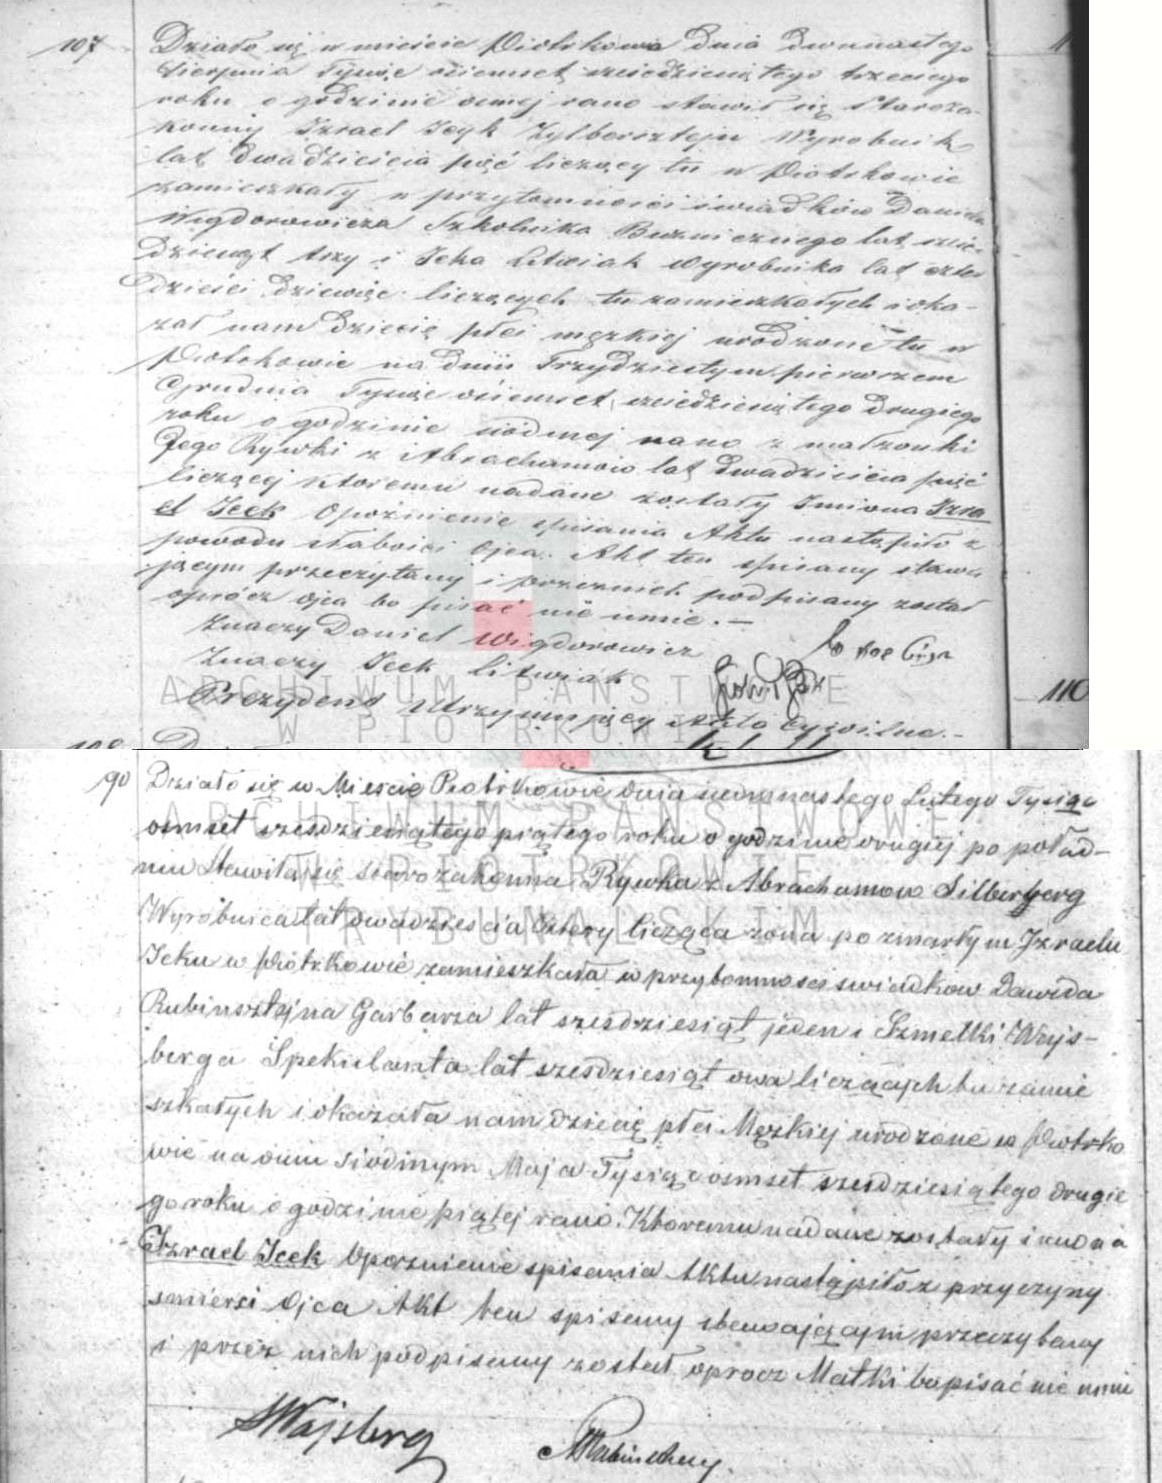 107
Działo się w mieście Piotrkowie dnia dwunastego
Sierpnia Tysiąc ośmset sześdziesiątego trzeciego
roku o godzinie ósmej rano stawił się Staroza-
konny Izrael Icyk Zylbersztejn Wyrobnik
lat dwadzieścia pięć liczący tu w Piotrkowie
zamieszkały w przytomności świadków Daniela
Wigdorowicza Szkolnika Bużnicznego lat sześ-
dziesiąt trzy i Icka Litwiak wyrobnika lat czter
dzieści dziewięć liczących tu zamieszkałych i oka-
zał nam dziecię płci męzkiej urodzone tu w
Piotrkowie na dniu Trzydziestym pierwszem
Grudnia Tysiąc ośmset sześdziesiątego drugiego
roku o godzinie siódmej rano z małżonki
Jego Rywki z Abrachamow lat dwadzieścia pięć
liczącej któremu nadane zostały Imiona Izra
el Icek Opoźnienie spisania Aktu nastąpiło z
powodu słabości Ojca. Akt ten spisany stawa
jącym przeczytany i przez nich podpisany został
oprócz ojca bo pisać nie umie. —
Znaczy Daniel Wigdorowicz
Znaczy Icek Litwiak
Prezydent Utrzymujący Akta Cywilne. -
110
ARCHIWUM PAŃSTWOWE
W PIOTRKOWIE
90
Działo się w Mieście Piotrkowie dnia siedmnastego Lutego Tysiąc
osmset szesdziesiątego piątego roku o godzinie drugiej po połud-
niu Stawiła się starozakonna Rywka z Abrachamow Silberberg
Wyrobnica lat dwadzieścia cztery licząca żona po zmarłym Izraelu
Icku w Piotrkowie zamieszkała w przytomności swiadkow Dawida
Rubinsztejna Garbarza lat szesdziesiąt jeden i Szmelki Wajs-
berga Spekulanta lat szesdziesiąt dwa liczących tu zamie
szkałych i okazała nam dziecię płci Męzkiej urodzone w Piotrko
wie na dniu siodmym Maja Tysiąc osmset szesdziesiątego drugie
go roku o godzinie piątej rano. Ktoremu nadane zostały imiona
Izrael Icek Opoznienie spisania Aktu nastąpiło z przyczyny
smierci Ojca Akt ten spisany stawającym przeczytany
i przez nich podpisany został oprocz Matki bo pisać nie umie
ARCHIWUM PAŃSTWOWE
W PIOTRKOWIE
TRYBUNALSKIM
SWajsberg